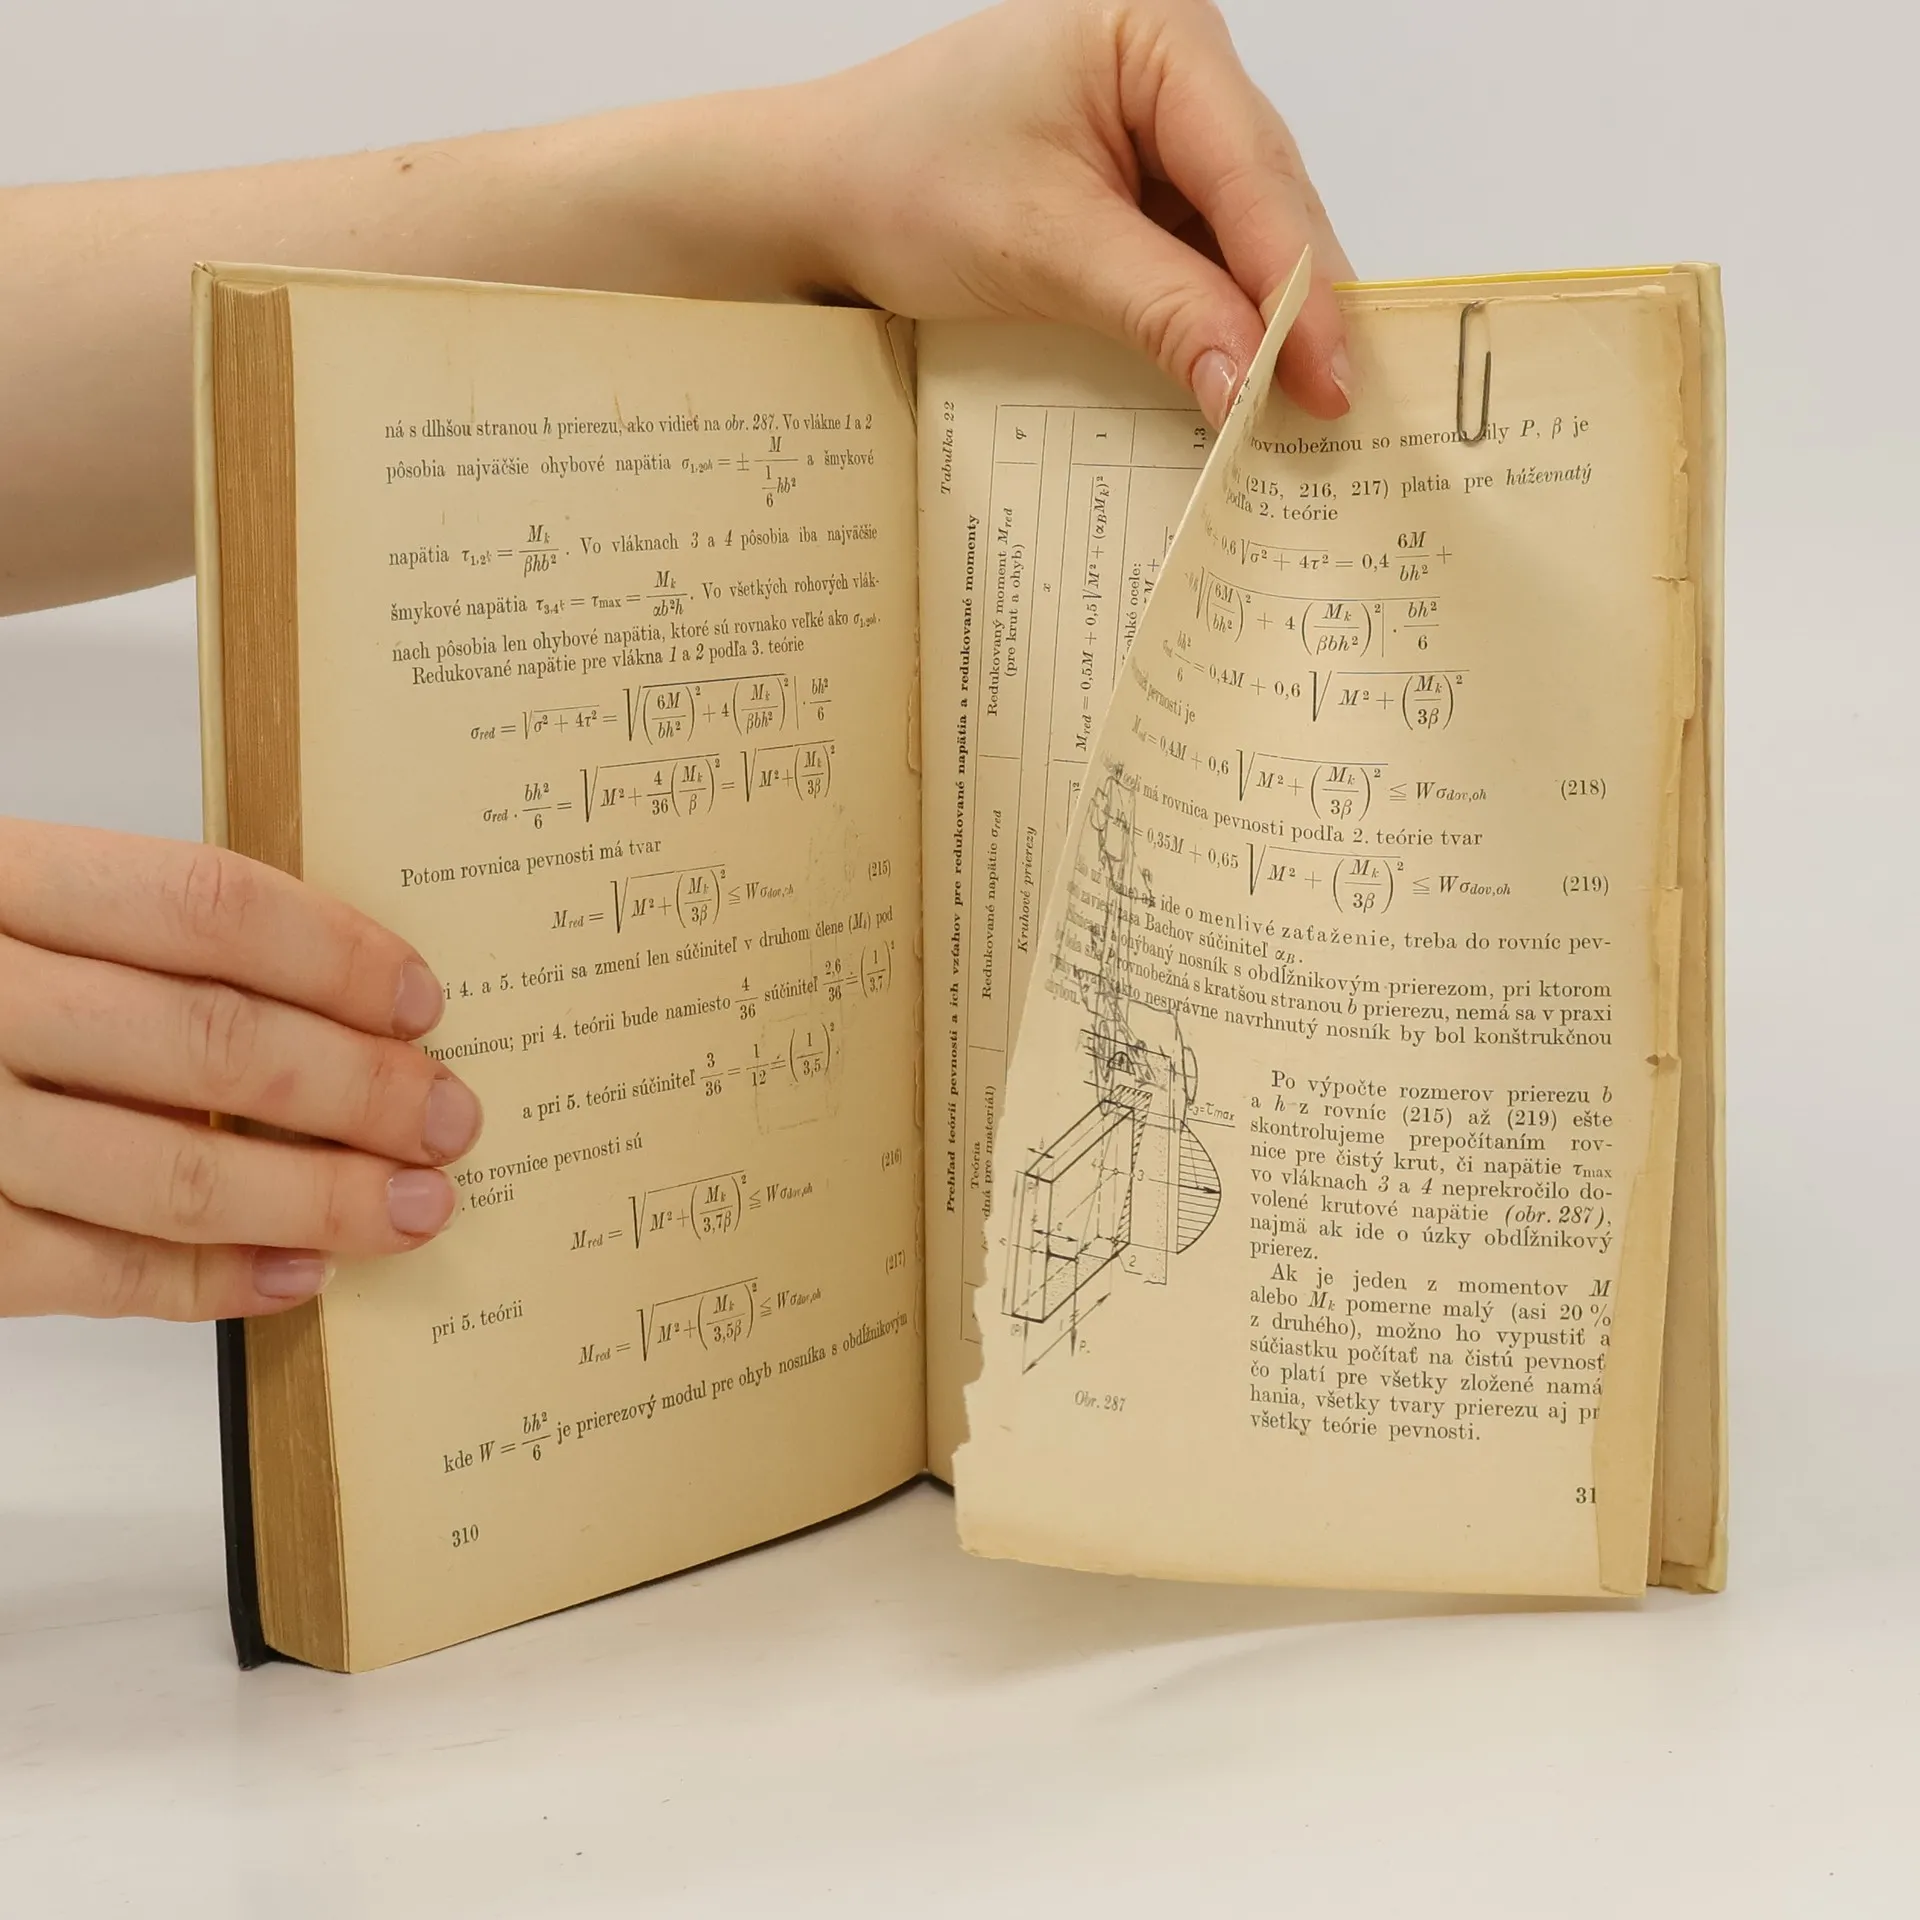 ná s dlhšou stranou h prierezu, ako vidieť na obr. 287. Vo vlákne 1 a 2
pôsobia najväčšie ohybové napätia σ1,2oh = ± M / (1/6 hb²) a šmykové
napätia τ1,2k = Mk / βhb² . Vo vláknach 3 a 4 pôsobia iba najväčšie
šmykové napätia τ3,4k = τmax = Mk / αb²h . Vo všetkých rohových vlák-
nach pôsobia len ohybové napätia, ktoré sú rovnako veľké ako σ1,2oh.
Redukované napätie pre vlákna 1 a 2 podľa 3. teórie
σred = √(σ² + 4τ²) = √((6M/bh²)² + 4(Mk/βbh²)²) | . bh²/6
σred . bh²/6 = √(M² + 4/36 (Mk/β)²) = √(M² + (Mk/3β)²)
Potom rovnica pevnosti má tvar
Mred = √(M² + (Mk/3β)²) ≦ Wσdov,oh (215)
i 4. a 5. teórii sa zmení len súčiniteľ v druhom člene (Mk) pod
mocninou; pri 4. teórii bude namiesto 4/36 súčiniteľ 2,6/36 ≐ (1/3,7)²
a pri 5. teórii súčiniteľ 3/36 = 1/12 ≐ (1/3,5)² .
eto rovnice pevnosti sú
. teórii
Mred = √(M² + (Mk/3,7β)²) ≦ Wσdov,oh (216)
pri 5. teórii
Mred = √(M² + (Mk/3,5β)²) ≦ Wσdov,oh (217)
kde W = bh²/6 je prierezový modul pre ohyb nosníka s obdĺžnikovým
310
Tabuľka 22
Prehľad teórií pevnosti a ich vzťahov pre redukované napätia a redukované momenty
Teória
dná pre materiál)
Redukované napätie σred
Redukovaný moment Mred
(pre krut a ohyb)
φ
Kruhové prierezy
x
Mred = 0,5M + 0,5√(M² + (αBMk)²)
1
hké ocele:
1,3
ovnobežnou so smerom sily P, β je
(215, 216, 217) platia pre húževnatý
podľa 2. teórie
0,6 √(σ² + 4τ²) = 0,4 6M/bh² +
√((6M/bh²)² + 4(Mk/βbh²)²) | . bh²/6
bh²/6 = 0,4M + 0,6 √(M² + (Mk/3β)²)
pevnosti je
Mred = 0,4M + 0,6 √(M² + (Mk/3β)²) ≦ Wσdov,oh (218)
má rovnica pevnosti podľa 2. teórie tvar
= 0,35M + 0,65 √(M² + (Mk/3β)²) ≦ Wσdov,oh (219)
ak ide o menlivé zaťaženie, treba do rovníc pev-
zaviesť zasa Bachov súčiniteľ αB.
ohýbaný nosník s obdĺžnikovým prierezom, pri ktorom
bola sila P rovnobežná s kratšou stranou b prierezu, nemá sa v praxi
takto nesprávne navrhnutý nosník by bol konštrukčnou
chybou.
τ3=τmax
3
2
h
P
Obr. 287
Po výpočte rozmerov prierezu b
a h z rovníc (215) až (219) ešte
skontrolujeme prepočítaním rov-
nice pre čistý krut, či napätie τmax
vo vláknach 3 a 4 neprekročilo do-
volené krutové napätie (obr. 287),
najmä ak ide o úzky obdĺžnikový
prierez.
Ak je jeden z momentov M
alebo Mk pomerne malý (asi 20 %
z druhého), možno ho vypustiť a
súčiastku počítať na čistú pevnosť
čo platí pre všetky zložené namá
hania, všetky tvary prierezu aj pr
všetky teórie pevnosti.
31